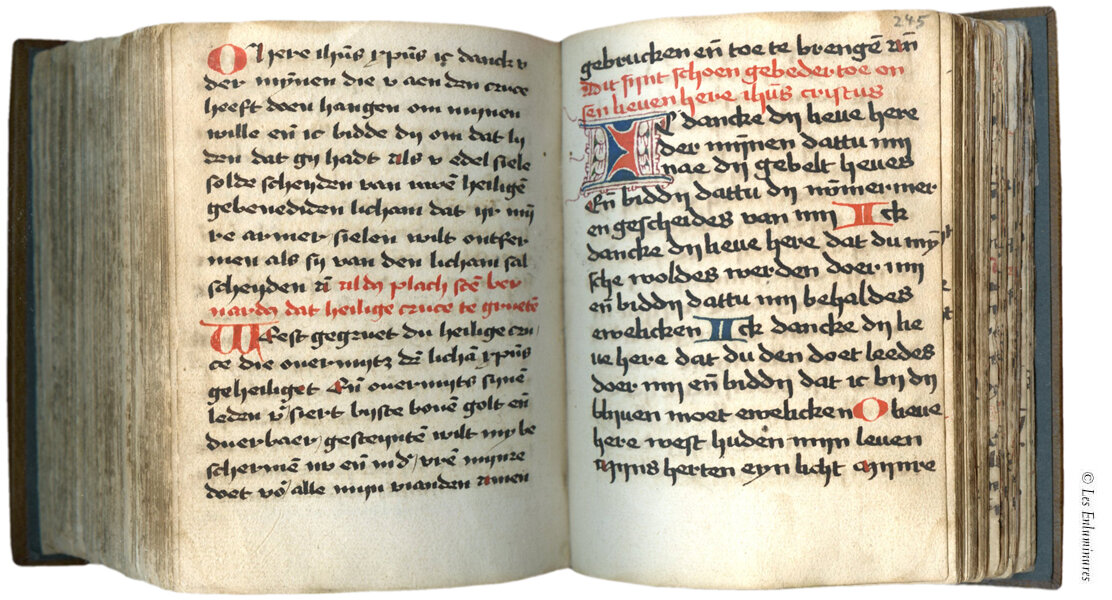 O here ihūs xpūs ic danck v
der mynnen die v aen den cruce
heeft doen hangen om mynen
wille en̄ ic bidde dy om dat lij
den dat gij hadt als v edel siele
solde scheyden van uwē heiligē
gebenediden licham dat ir mÿ
re armer sielen wilt ontfer
men als sy van den licham sal
scheyden am̄ Aldꝰ plach stē ber
nardꝰ dat heilige cruce te gruetē
West gegruet du heilige cru
ce die ouermytz dē lichā xpūs
geheiliget En̄ ouermyts synē
leden v̄siert byste bouē golt en̄
duerbaer gesteyntē wilt my be
schermē nv en̄ in dˀ vrē mynre
doet vō alle mijn vianden amen
245
gebrucken en̄ toe te brengē am̄
Dit synt schoen gebeder toe on
sen lieuen here ihūs cristus
IC dancke dij lieue here
der mynnen dattu mij
nae dij gebelt heues
En̄ biddij dattu dij nȳmermer
en gescheides van mij Ick
dancke dij lieue here dat du mȳ
sche woldes werden doer mij
en̄ biddij dattu mij behaldes
ewelicken Ick dancke dij lie
ue here dat du den doet leedes
doer mij en̄ biddij dat ic bij dij
blijuen moet ewelicken O lieue
here west huden mijn leuen
Mijns herten eyn licht Mijnre
© Les Enluminures